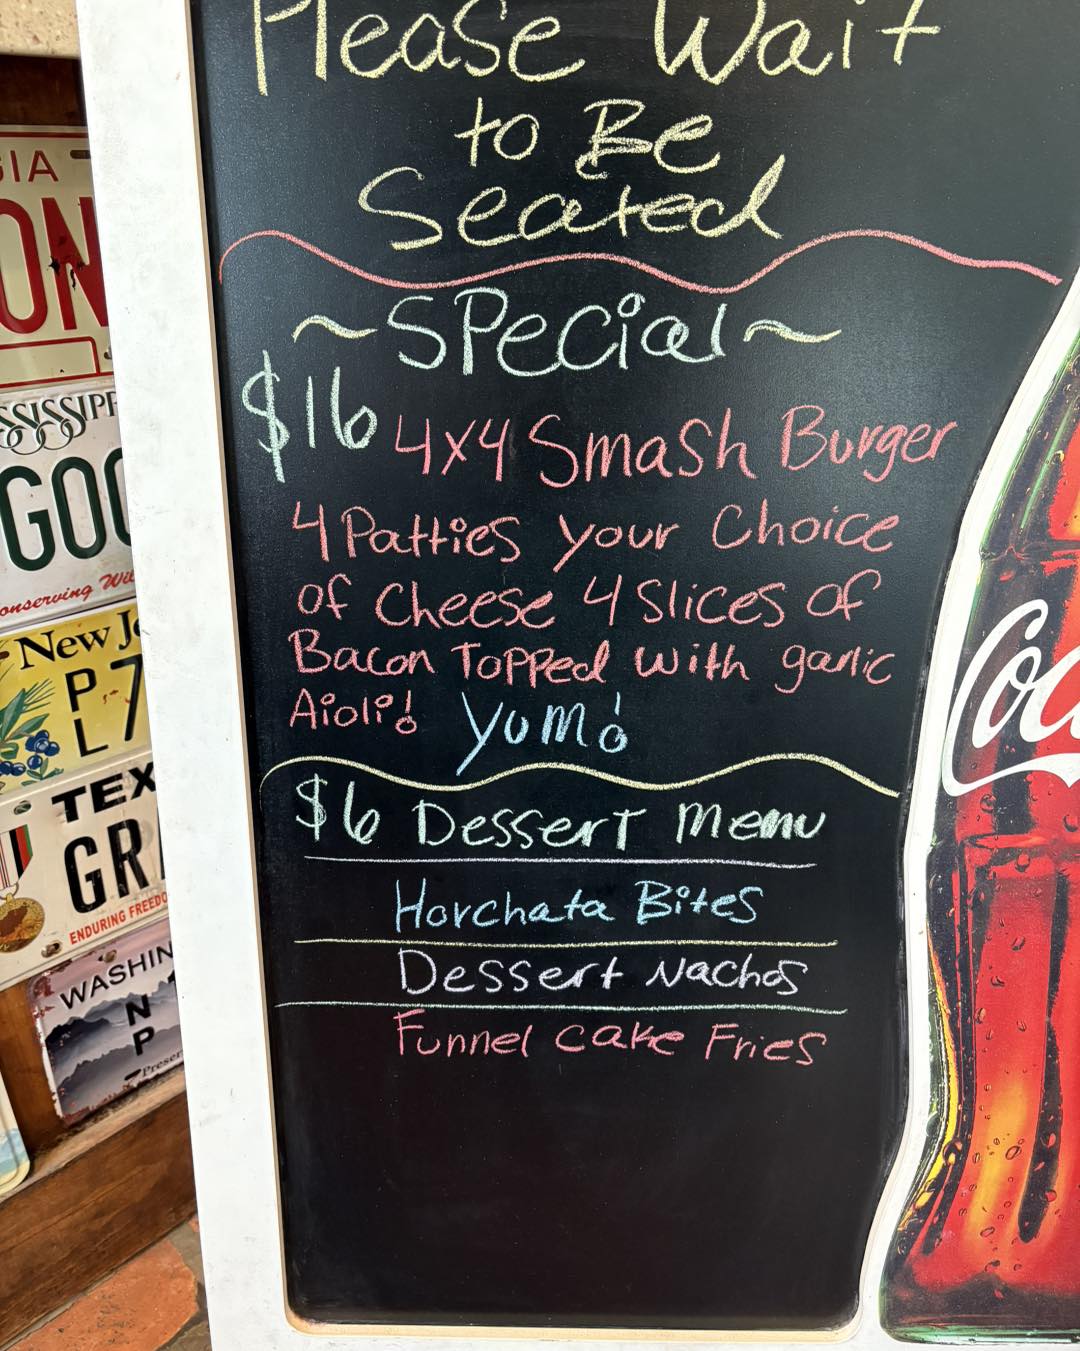 Please Wait
to Be
Seated
~Special~
$16 4x4 Smash Burger
4 Patties your Choice
of Cheese 4 Slices of
Bacon Topped with garlic
Aioli! Yum!
$6 Dessert Menu
Horchata Bites
Dessert Nachos
Funnel Cake Fries
GIA
ON
SSISSIPP
GOO
onserving Wi
New Je
P 7
L
TEX
GR
ENDURING FREEDO
WASHIN
N
P
Preser
Coca